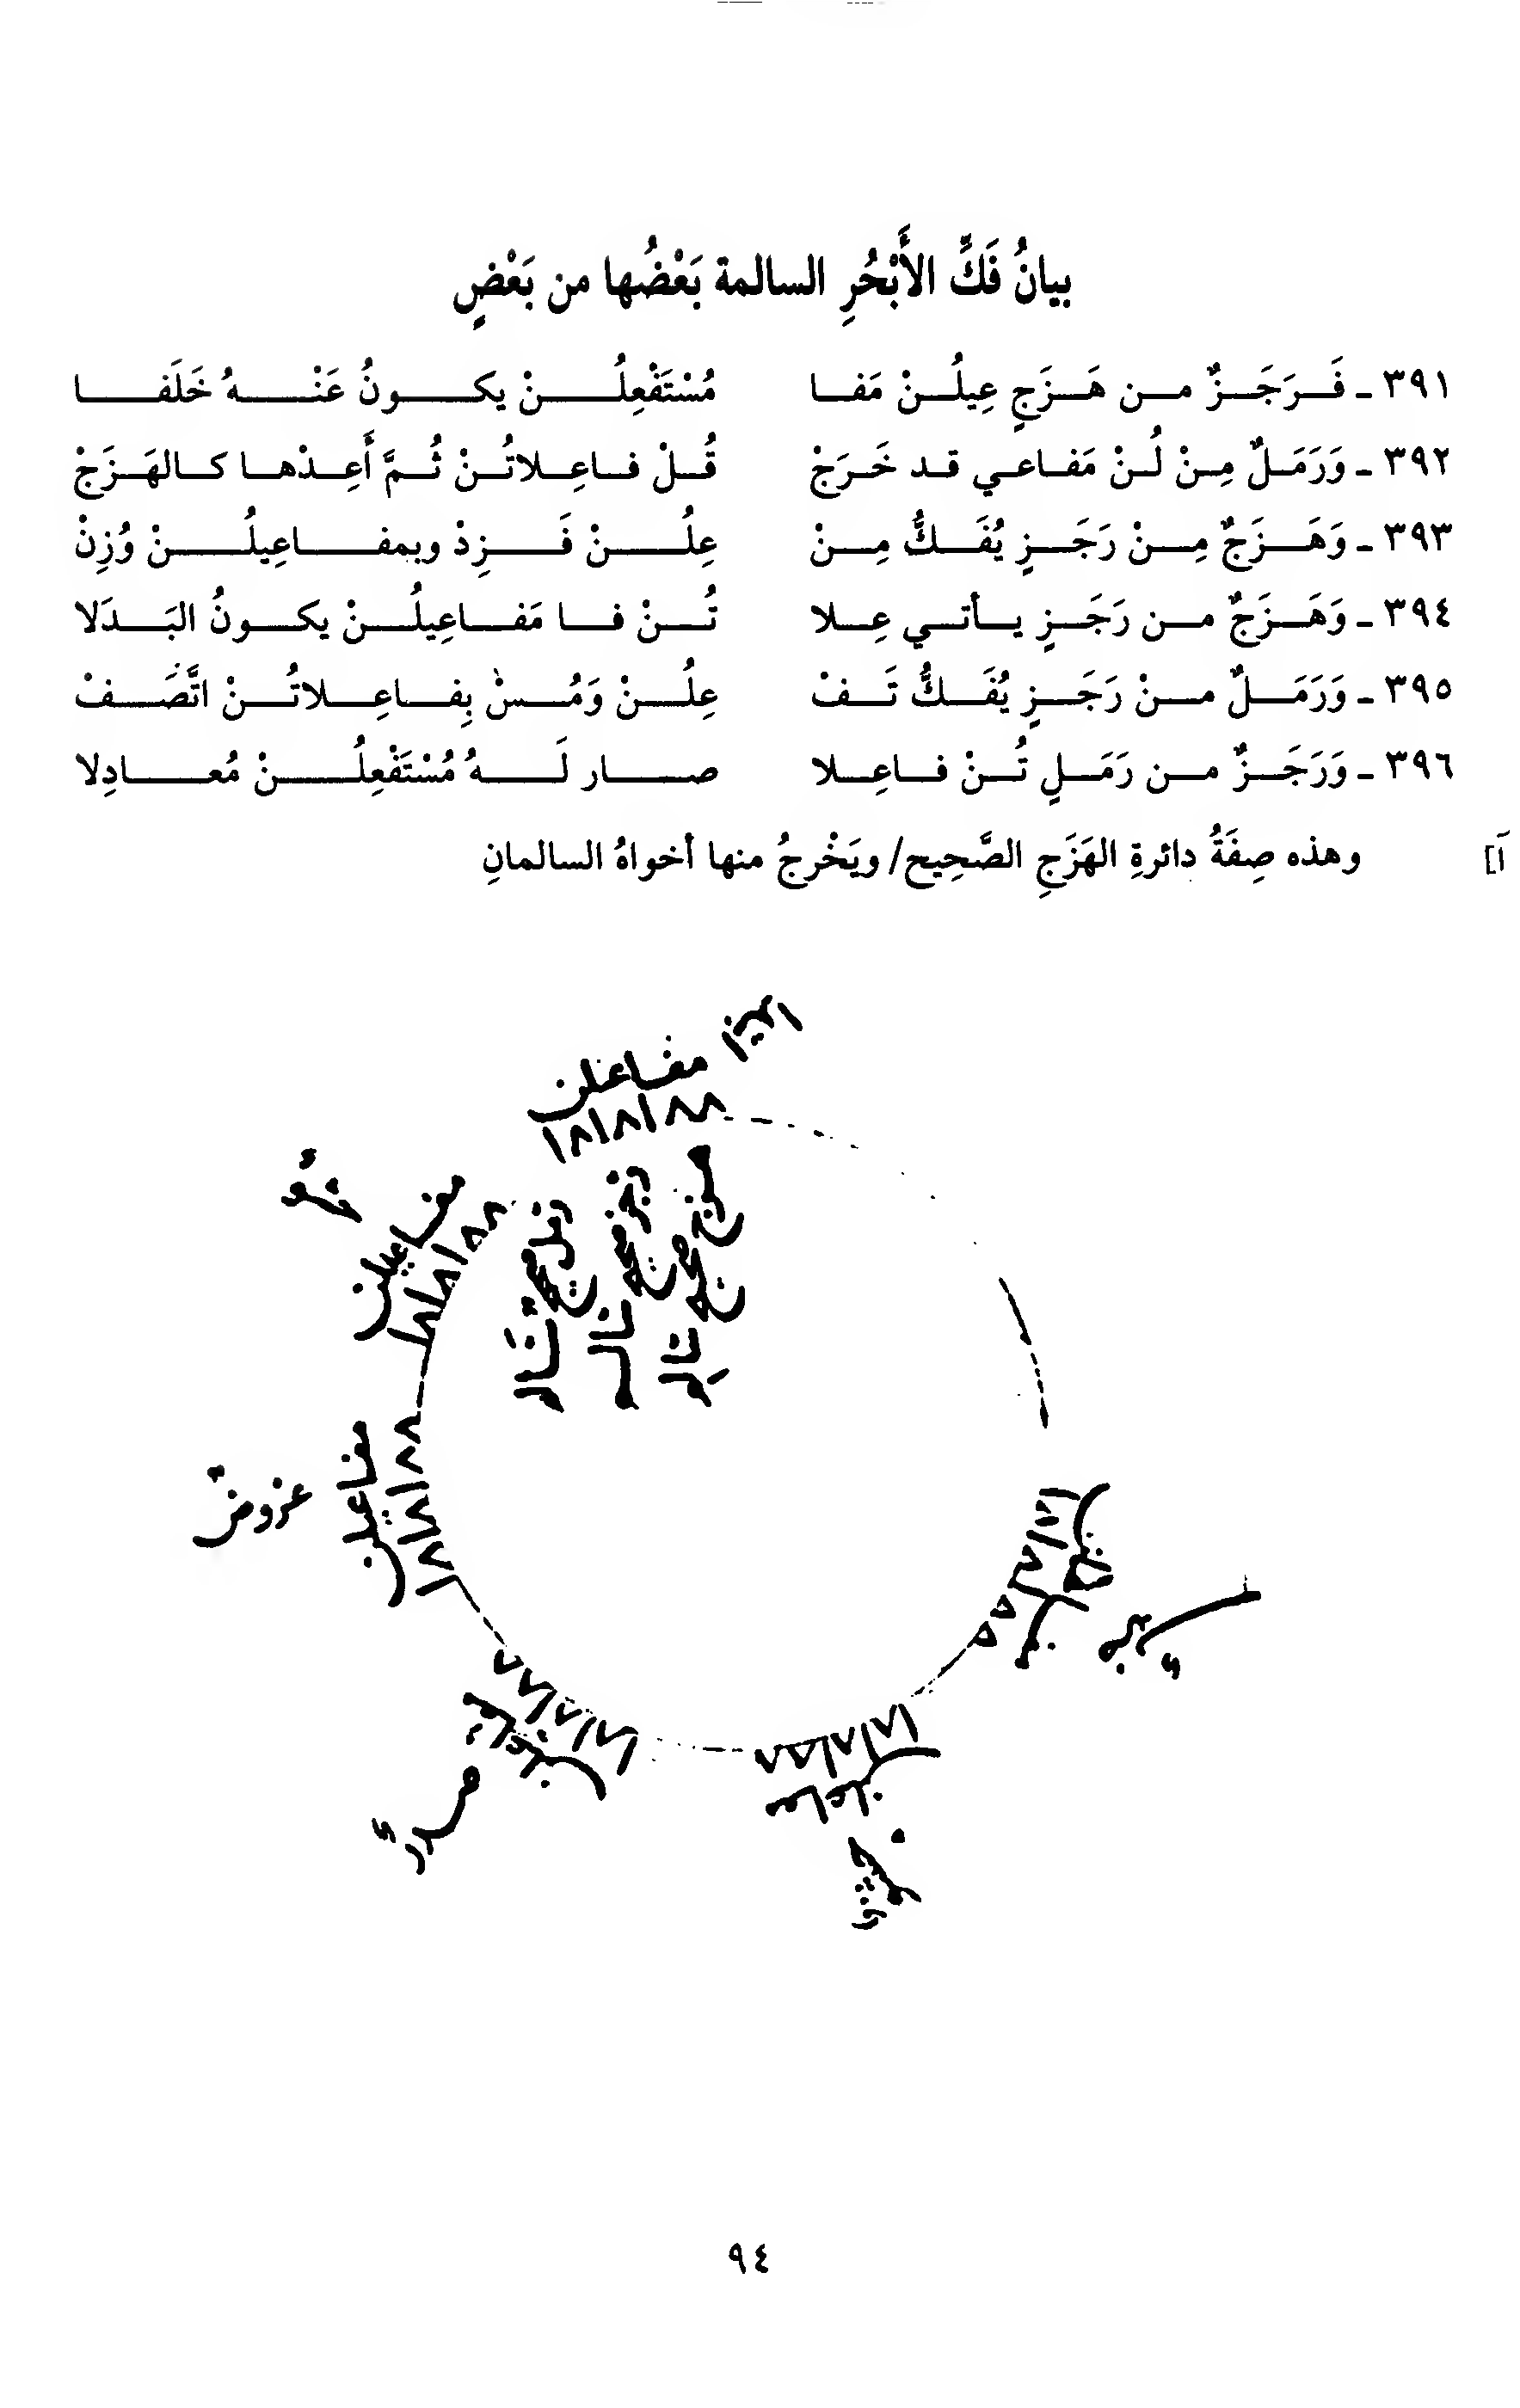 بيانُ فَكِّ الأَبْحُرِ السالمة بَعْضُها من بَعْضٍ
٣٩١ ـ فَـرَجَـزٌ مـن هَـزَجٍ عِيلُـنْ مَفـا مُسْتَفْعِلُـنْ يكـونُ عَنْـهُ خَلَفـا
٣٩٢ ـ وَرَمَـلٌ مِـنْ لُـنْ مَفـاعـي قـد خَـرَجْ قُـلْ فـاعِـلاتُـنْ ثُـمَّ أَعِـدْهـا كـالهَـزَجْ
٣٩٣ ـ وَهَـزَجٌ مِـنْ رَجَـزٍ يُفَـكُّ مِـنْ عِلُـنْ فَـزِدْ وبمفـاعِيلُـنْ وُزِنْ
٣٩٤ ـ وَهَـزَجٌ مـن رَجَـزٍ يـأتـي عِـلا تُـنْ فـا مَفـاعِيلُـنْ يكـونُ البَـدَلا
٣٩٥ ـ وَرَمَـلٌ مـنْ رَجَـزٍ يُفَـكُّ تَـفْ عِلُـنْ وَمُـسْ بِفـاعِـلاتُـنْ اتَّصَـفْ
٣٩٦ ـ وَرَجَـزٌ مـن رَمَـلٍ تُـنْ فـاعِـلا صـار لَـهُ مُسْتَفْعِلُـنْ مُعـادِلا
آ] وهذه صِفَةُ دائرةِ الهَزَجِ الصَّحِيح/ ويَخْرجُ منها أخواهُ السالمانِ
مفاعلن
مفاعيلن
عروض
هزج صحيح سالم
رجز صحيح سالم
رمل صحيح سالم
٩٤